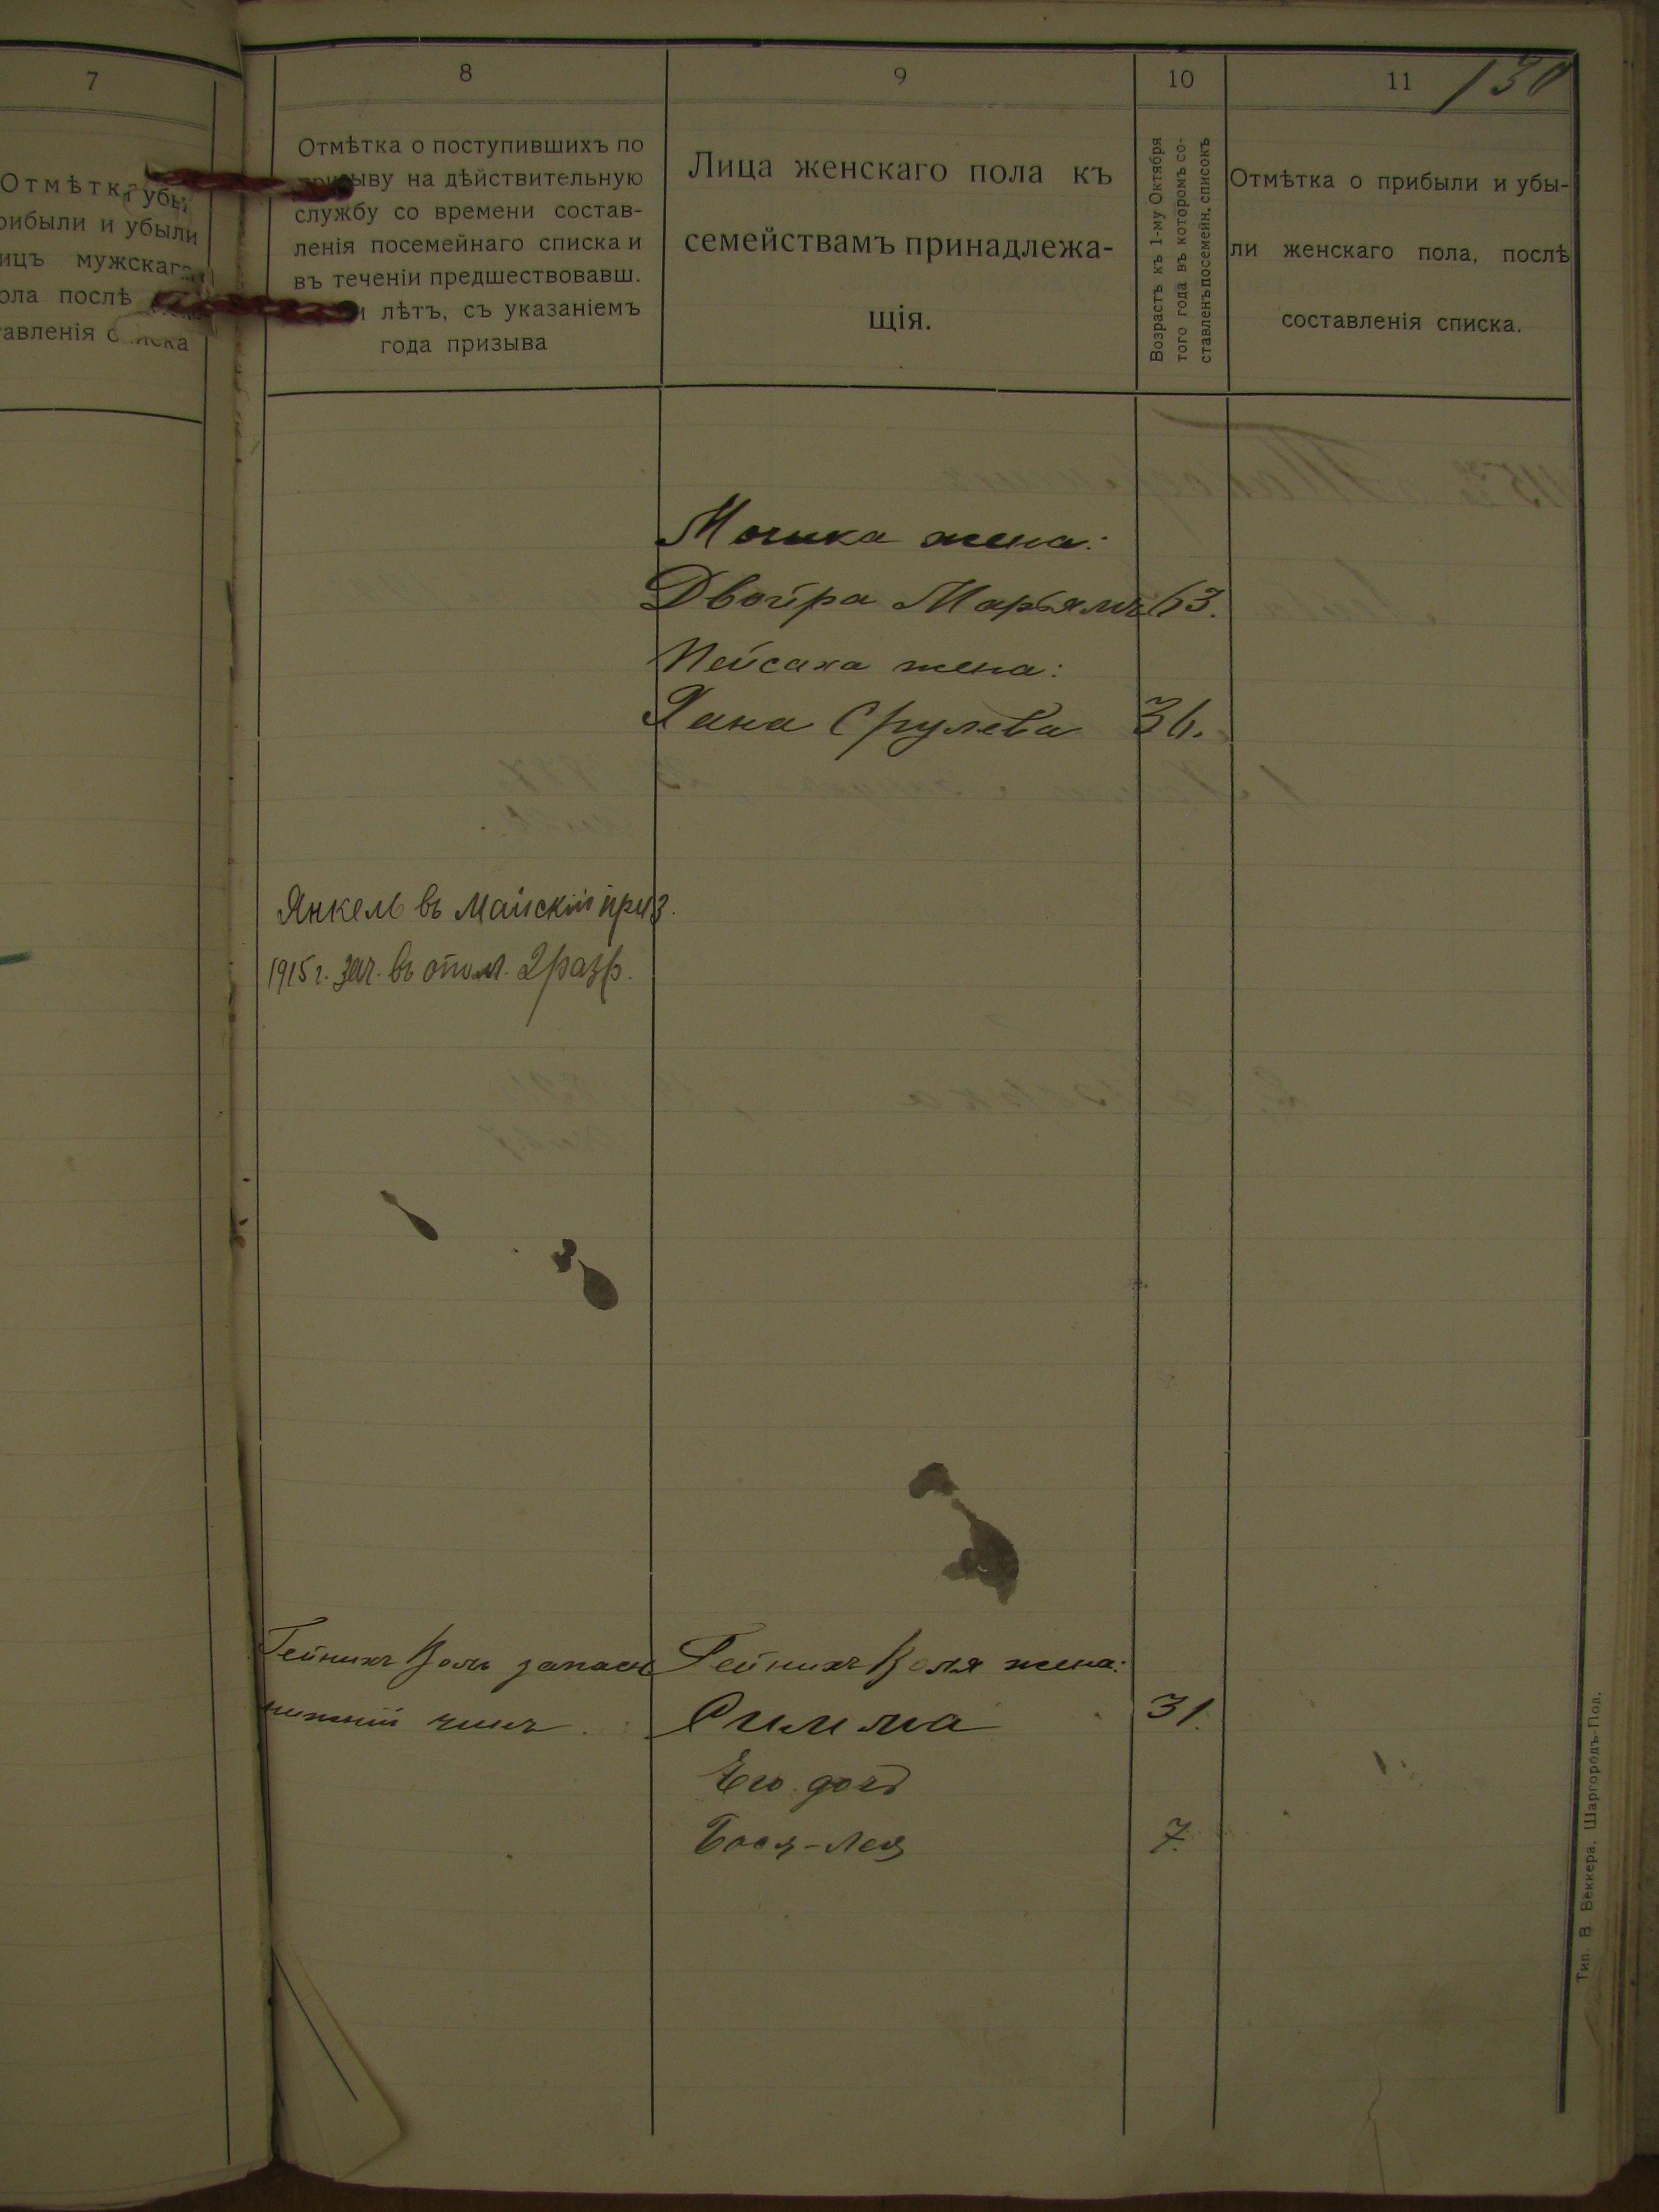 7
Отмѣтка убы
рибыли и убыли
ицъ мужскаго
ола послѣ
тавленія списка
8
Отмѣтка о поступившихъ по
призыву на дѣйствительную
службу со времени состав-
ленія посемейнаго списка и
въ теченіи предшествовавш.
лѣтъ, съ указаніемъ
года призыва
9
Лица женскаго пола къ
семействамъ принадлежа-
щія.
10
Возрастъ къ 1-му Октября
того года въ которомъ со-
ставленъ посемейн. списокъ
11
130
Отмѣтка о прибыли и убы-
ли женскаго пола, послѣ
составленія списка.
Мошка жена:
Двойра Марьямъ 63.
Пейсаха жена:
Хана Срулева 36.
Янкель въ Майскій приз.
1915 г. зач. въ опол. 2 разр.
Гейнихъ Воль запасн
нижній чинъ.
Гейнихъ Воля жена:
Симма 31.
Его дочь
Бася-Лея 7.
Тип. В. Веккера, Шаргородъ-Под.